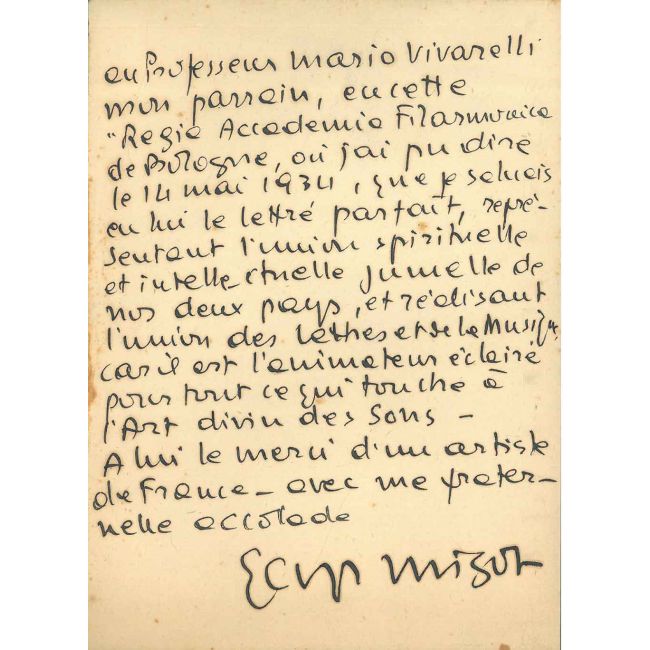 au Professeur Mario Vivarelli
mon parrain, en cette
"Regia Accademia Filarmonica
de Bologne, où j'ai pu dire
le 14 mai 1934, que je saluais
en lui le lettré parfait, repré-
sentant l'union spirituelle
et intellectuelle jumelle de
nos deux pays, et réalisant
l'union des lettres et de la Musique
car il est l'animateur éclairé
pour tout ce qui touche à
l'Art divin des Sons -
A lui le merci d'un artiste
de France - avec une frater-
nelle accolade
Migot